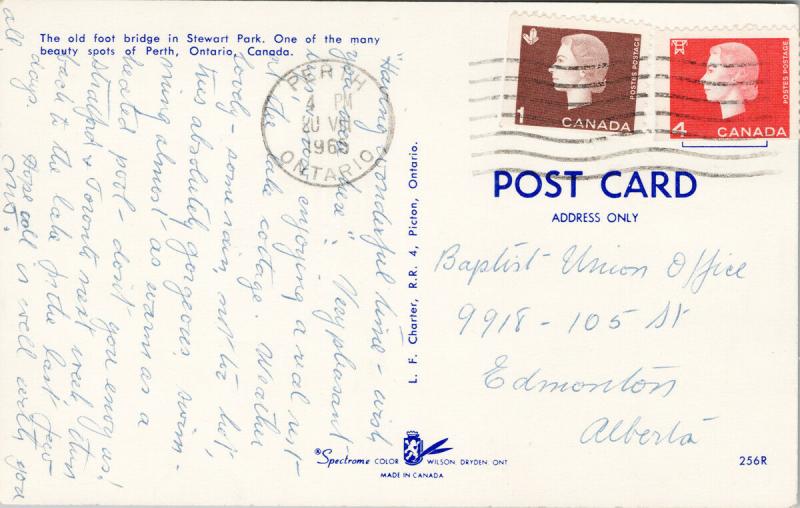 The old foot bridge in Stewart Park. One of the many
beauty spots of Perth, Ontario, Canada.
"Having wonderful time - wish
you were here". Very pleasant
enjoying a real rest
at the lake cottage. Weather
lovely - some rain, not too hot,
two absolutely gorgeous swim-
ming almost as warm as a
heated pool - don't you envy us!
Stratford & Toronto next week then
back to the lake for the last few
days.
Hope all is well with you
all
L. F. Charter, R.R. 4, Picton, Ontario.
PERTH
4 PM
20 VII
196
ONTARIO
POSTES POSTAGE
1
CANADA
POSTES POSTAGE
4
CANADA
POST CARD
ADDRESS ONLY
Baptist Union Office
9918 - 105 St
Edmonton
Alberta
®Spectrome COLOR WILSON, DRYDEN, ONT
MADE IN CANADA
256R